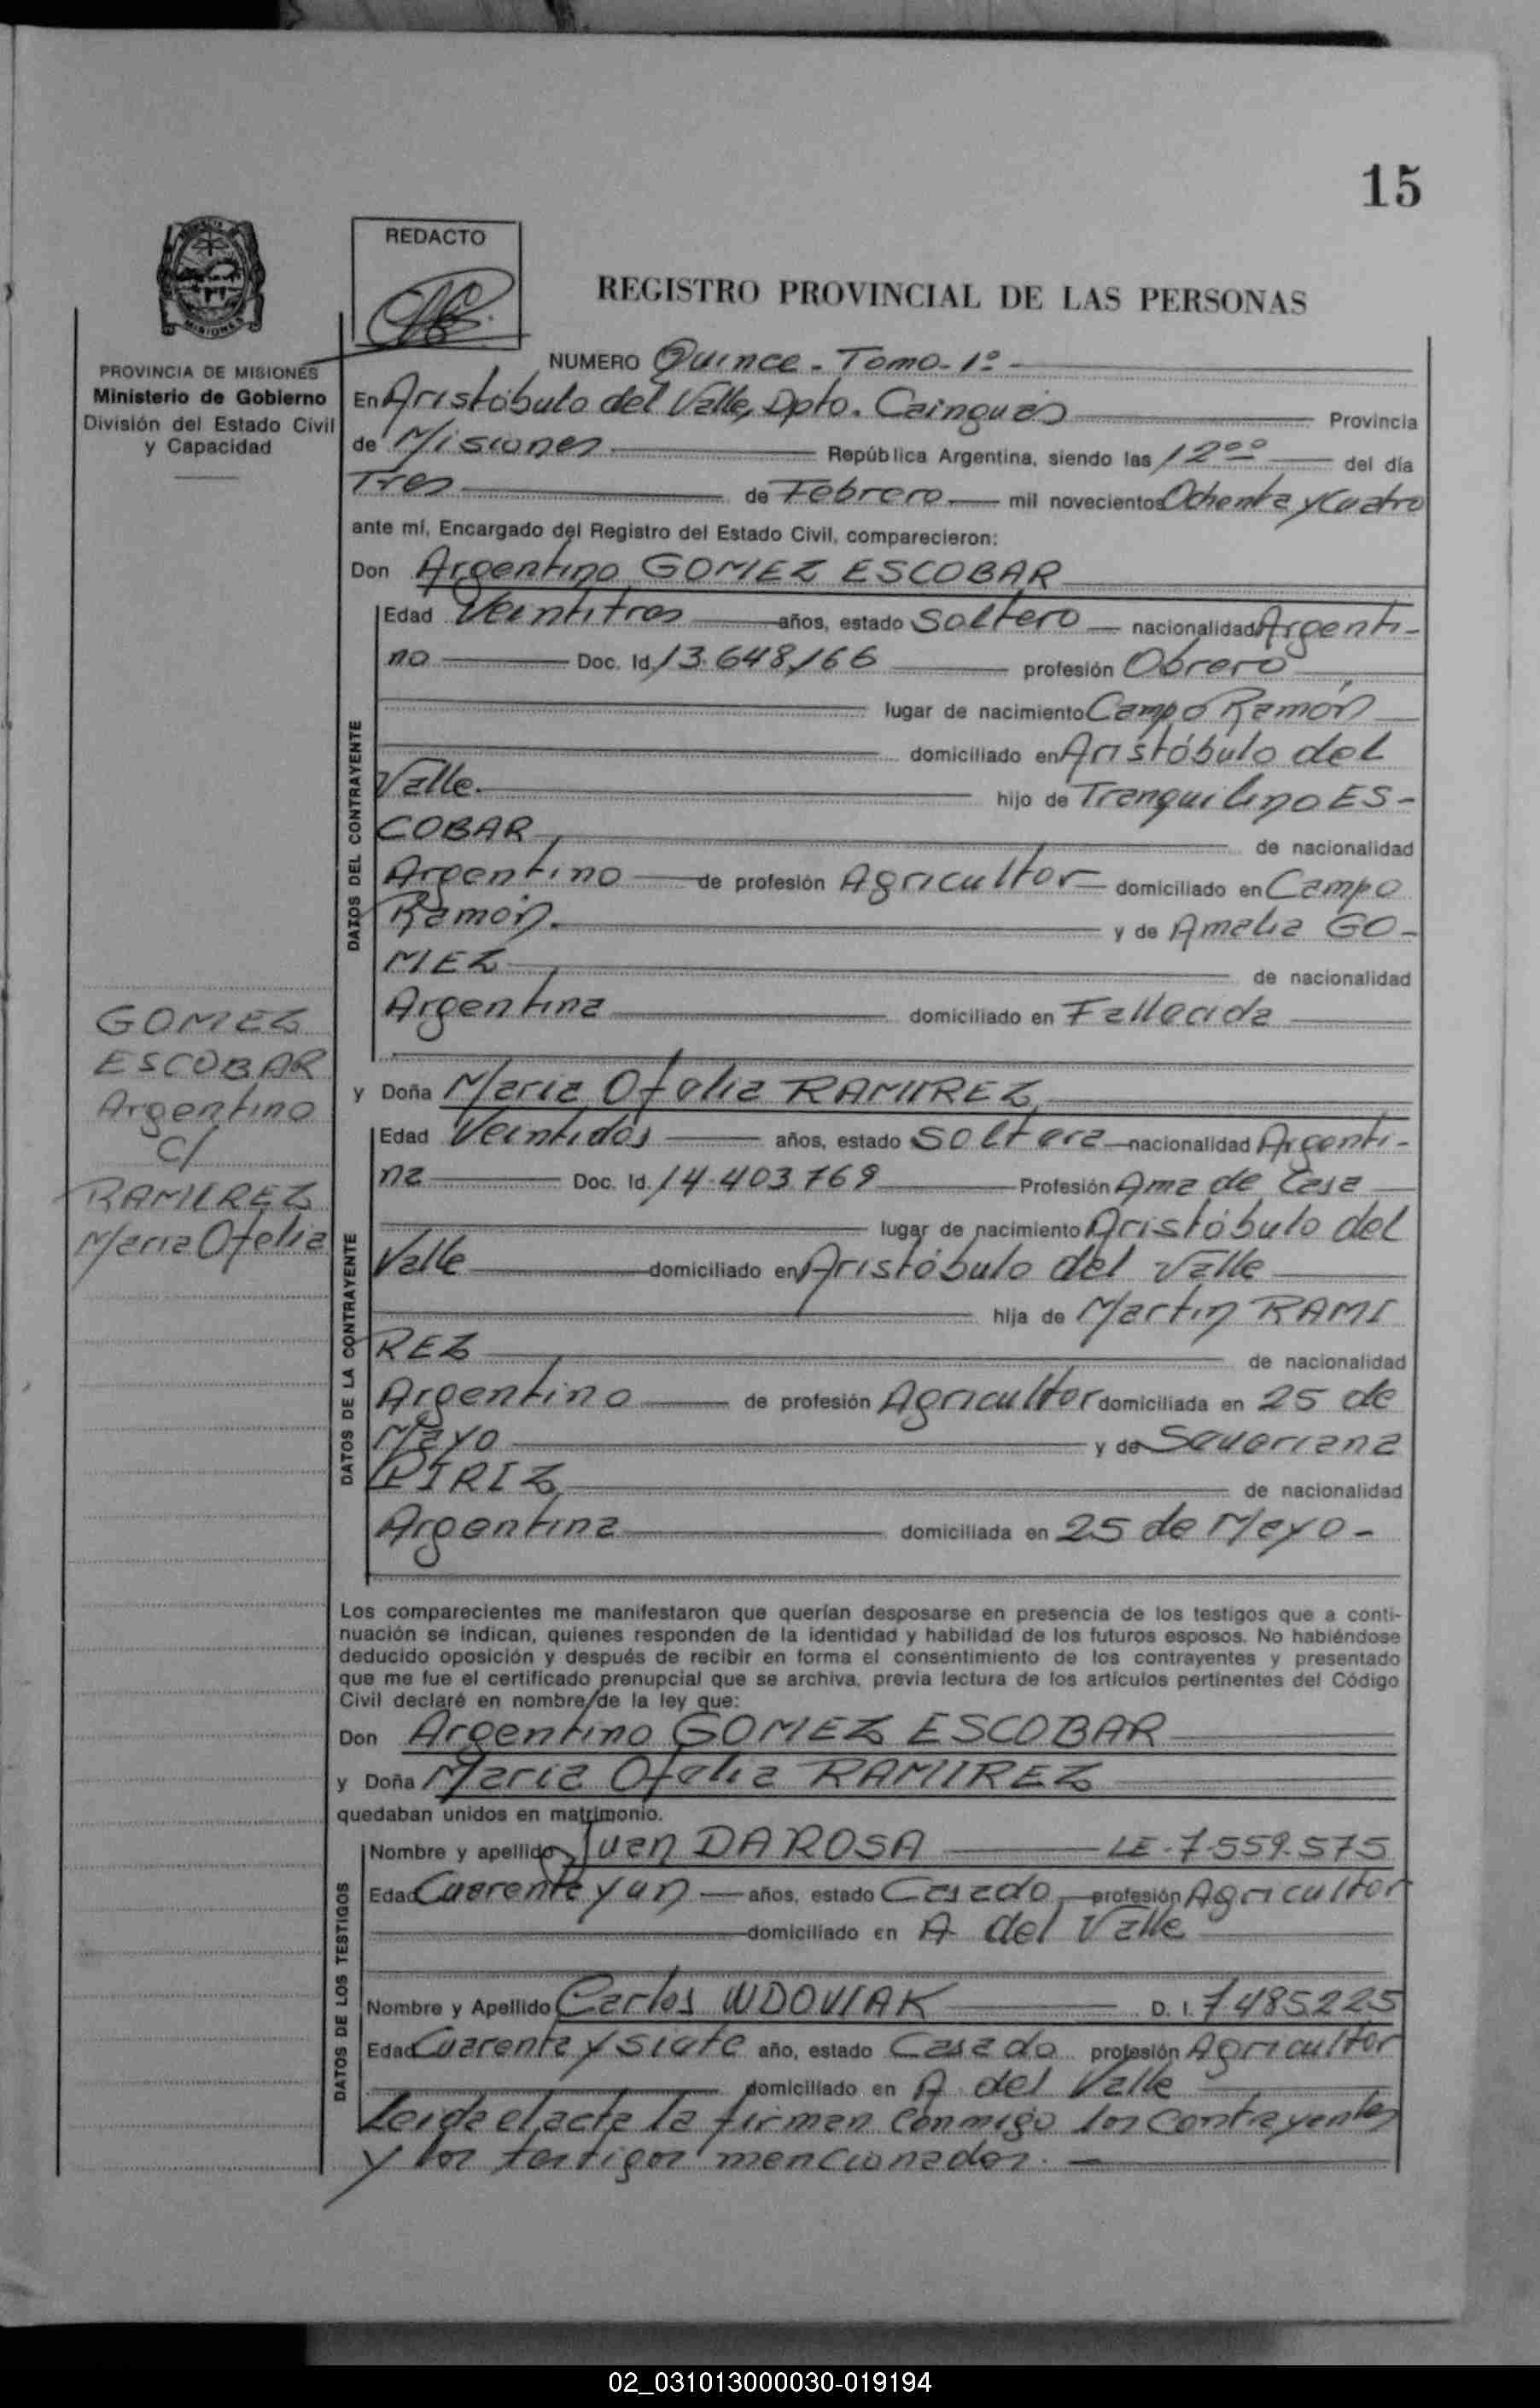 15
REDACTO
REGISTRO PROVINCIAL DE LAS PERSONAS
MISIONES
PROVINCIA DE MISIONES
Ministerio de Gobierno
División del Estado Civil
y Capacidad
NUMERO Quince - Tomo - 1º -
En Aristóbulo del Valle, Dpto. Cainguás Provincia
de Misiones República Argentina, siendo las 12ºº del día
Tres de Febrero mil novecientos Ochenta y Cuatro
ante mí, Encargado del Registro del Estado Civil, comparecieron:
Don Argentino GOMEZ ESCOBAR
Edad Veintitres años, estado Soltero nacionalidad Argenti-
no Doc. Id. 13.648,166 profesión Obrero
lugar de nacimiento Campo Ramón
domiciliado en Aristóbulo del
Valle. hijo de Tranquilino ES-
COBAR, de nacionalidad
Argentino de profesión Agricultor domiciliado en Campo
Ramón. y de Amalia GO-
MEZ, de nacionalidad
Argentina domiciliado en Fallecida
DATOS DEL CONTRAYENTE
GOMEZ
ESCOBAR
Argentino
c/
RAMIREZ
Maria Ofelia
y Doña Maria Ofelia RAMIREZ,
Edad Veintidós años, estado Soltera nacionalidad Argenti-
na Doc. Id. 14.403.769 Profesión Ama de Casa
lugar de nacimiento Aristóbulo del
Valle domiciliado en Aristóbulo del Valle
hija de Martin RAMI
REZ de nacionalidad
Argentino de profesión Agricultor domiciliada en 25 de
Mayo y de Severiana
PIRIZ, de nacionalidad
Argentina domiciliada en 25 de Mayo -
DATOS DE LA CONTRAYENTE
Los comparecientes me manifestaron que querían desposarse en presencia de los testigos que a conti-
nuación se indican, quienes responden de la identidad y habilidad de los futuros esposos. No habiéndose
deducido oposición y después de recibir en forma el consentimiento de los contrayentes y presentado
que me fue el certificado prenupcial que se archiva, previa lectura de los artículos pertinentes del Código
Civil declaré en nombre de la ley que:
Don Argentino GOMEZ ESCOBAR
y Doña Maria Ofelia RAMIREZ
quedaban unidos en matrimonio.
Nombre y apellido Juan DA ROSA LE - 7.559.575
Edad Cuarenta y un años, estado Casado, profesión Agricultor
domiciliado en A del Valle
Nombre y Apellido Carlos WDOVIAK D. I. 7485225
Edad Cuarenta y siete año, estado Casado profesión Agricultor
domiciliado en A del Valle
DATOS DE LOS TESTIGOS
Leida el acta la firman conmigo los contrayentes
y los testigos mencionados. -
02_031013000030-019194